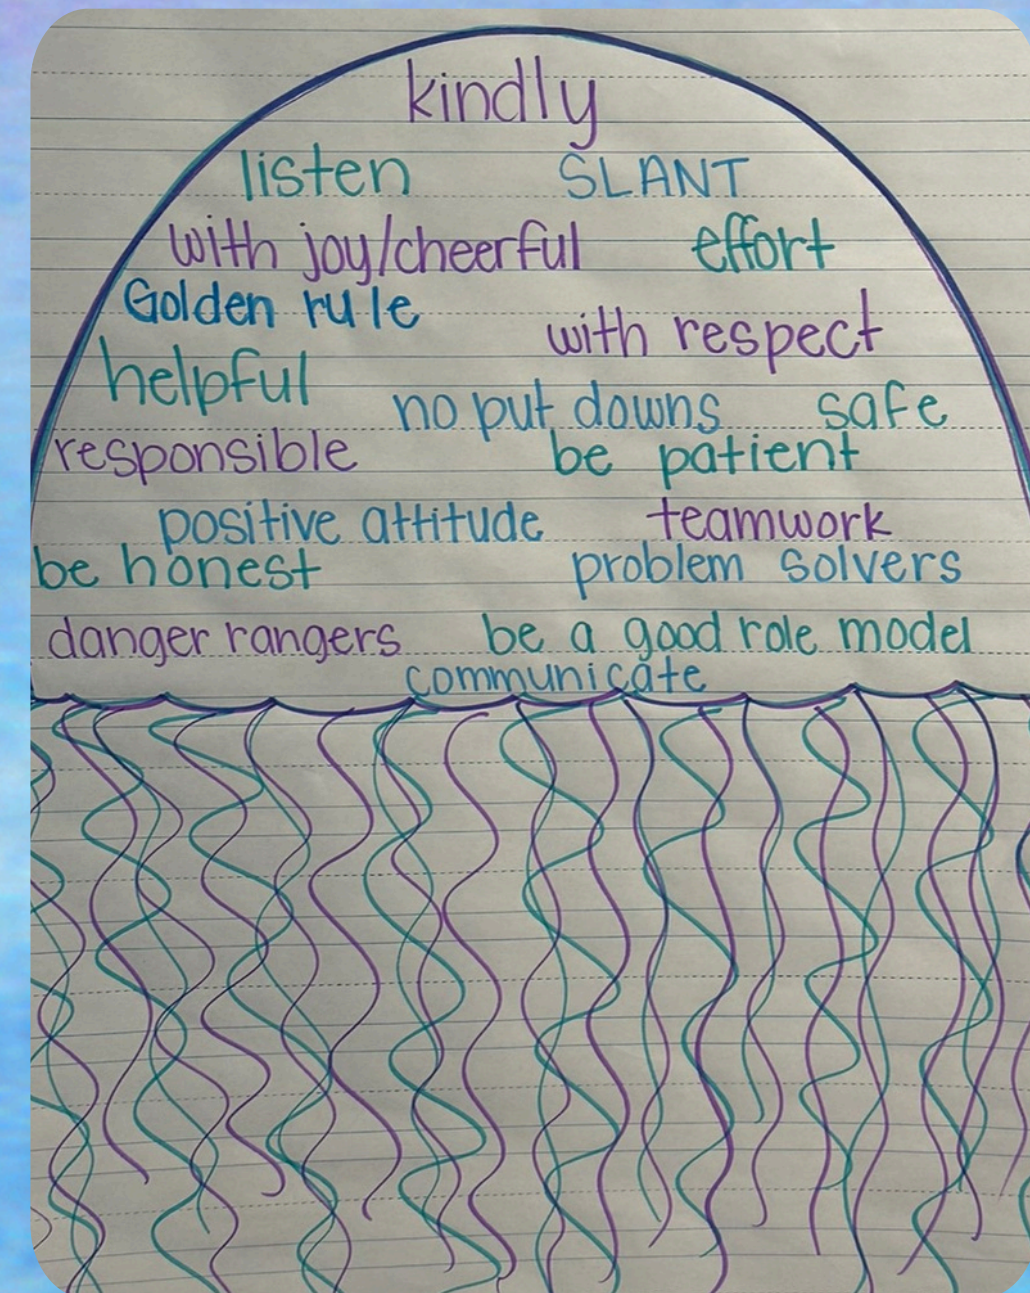 kindly
listen SLANT
with joy/cheerful effort
Golden rule
with respect
helpful
no put downs safe
responsible be patient
positive attitude teamwork
be honest problem solvers
danger rangers be a good role model
communicate